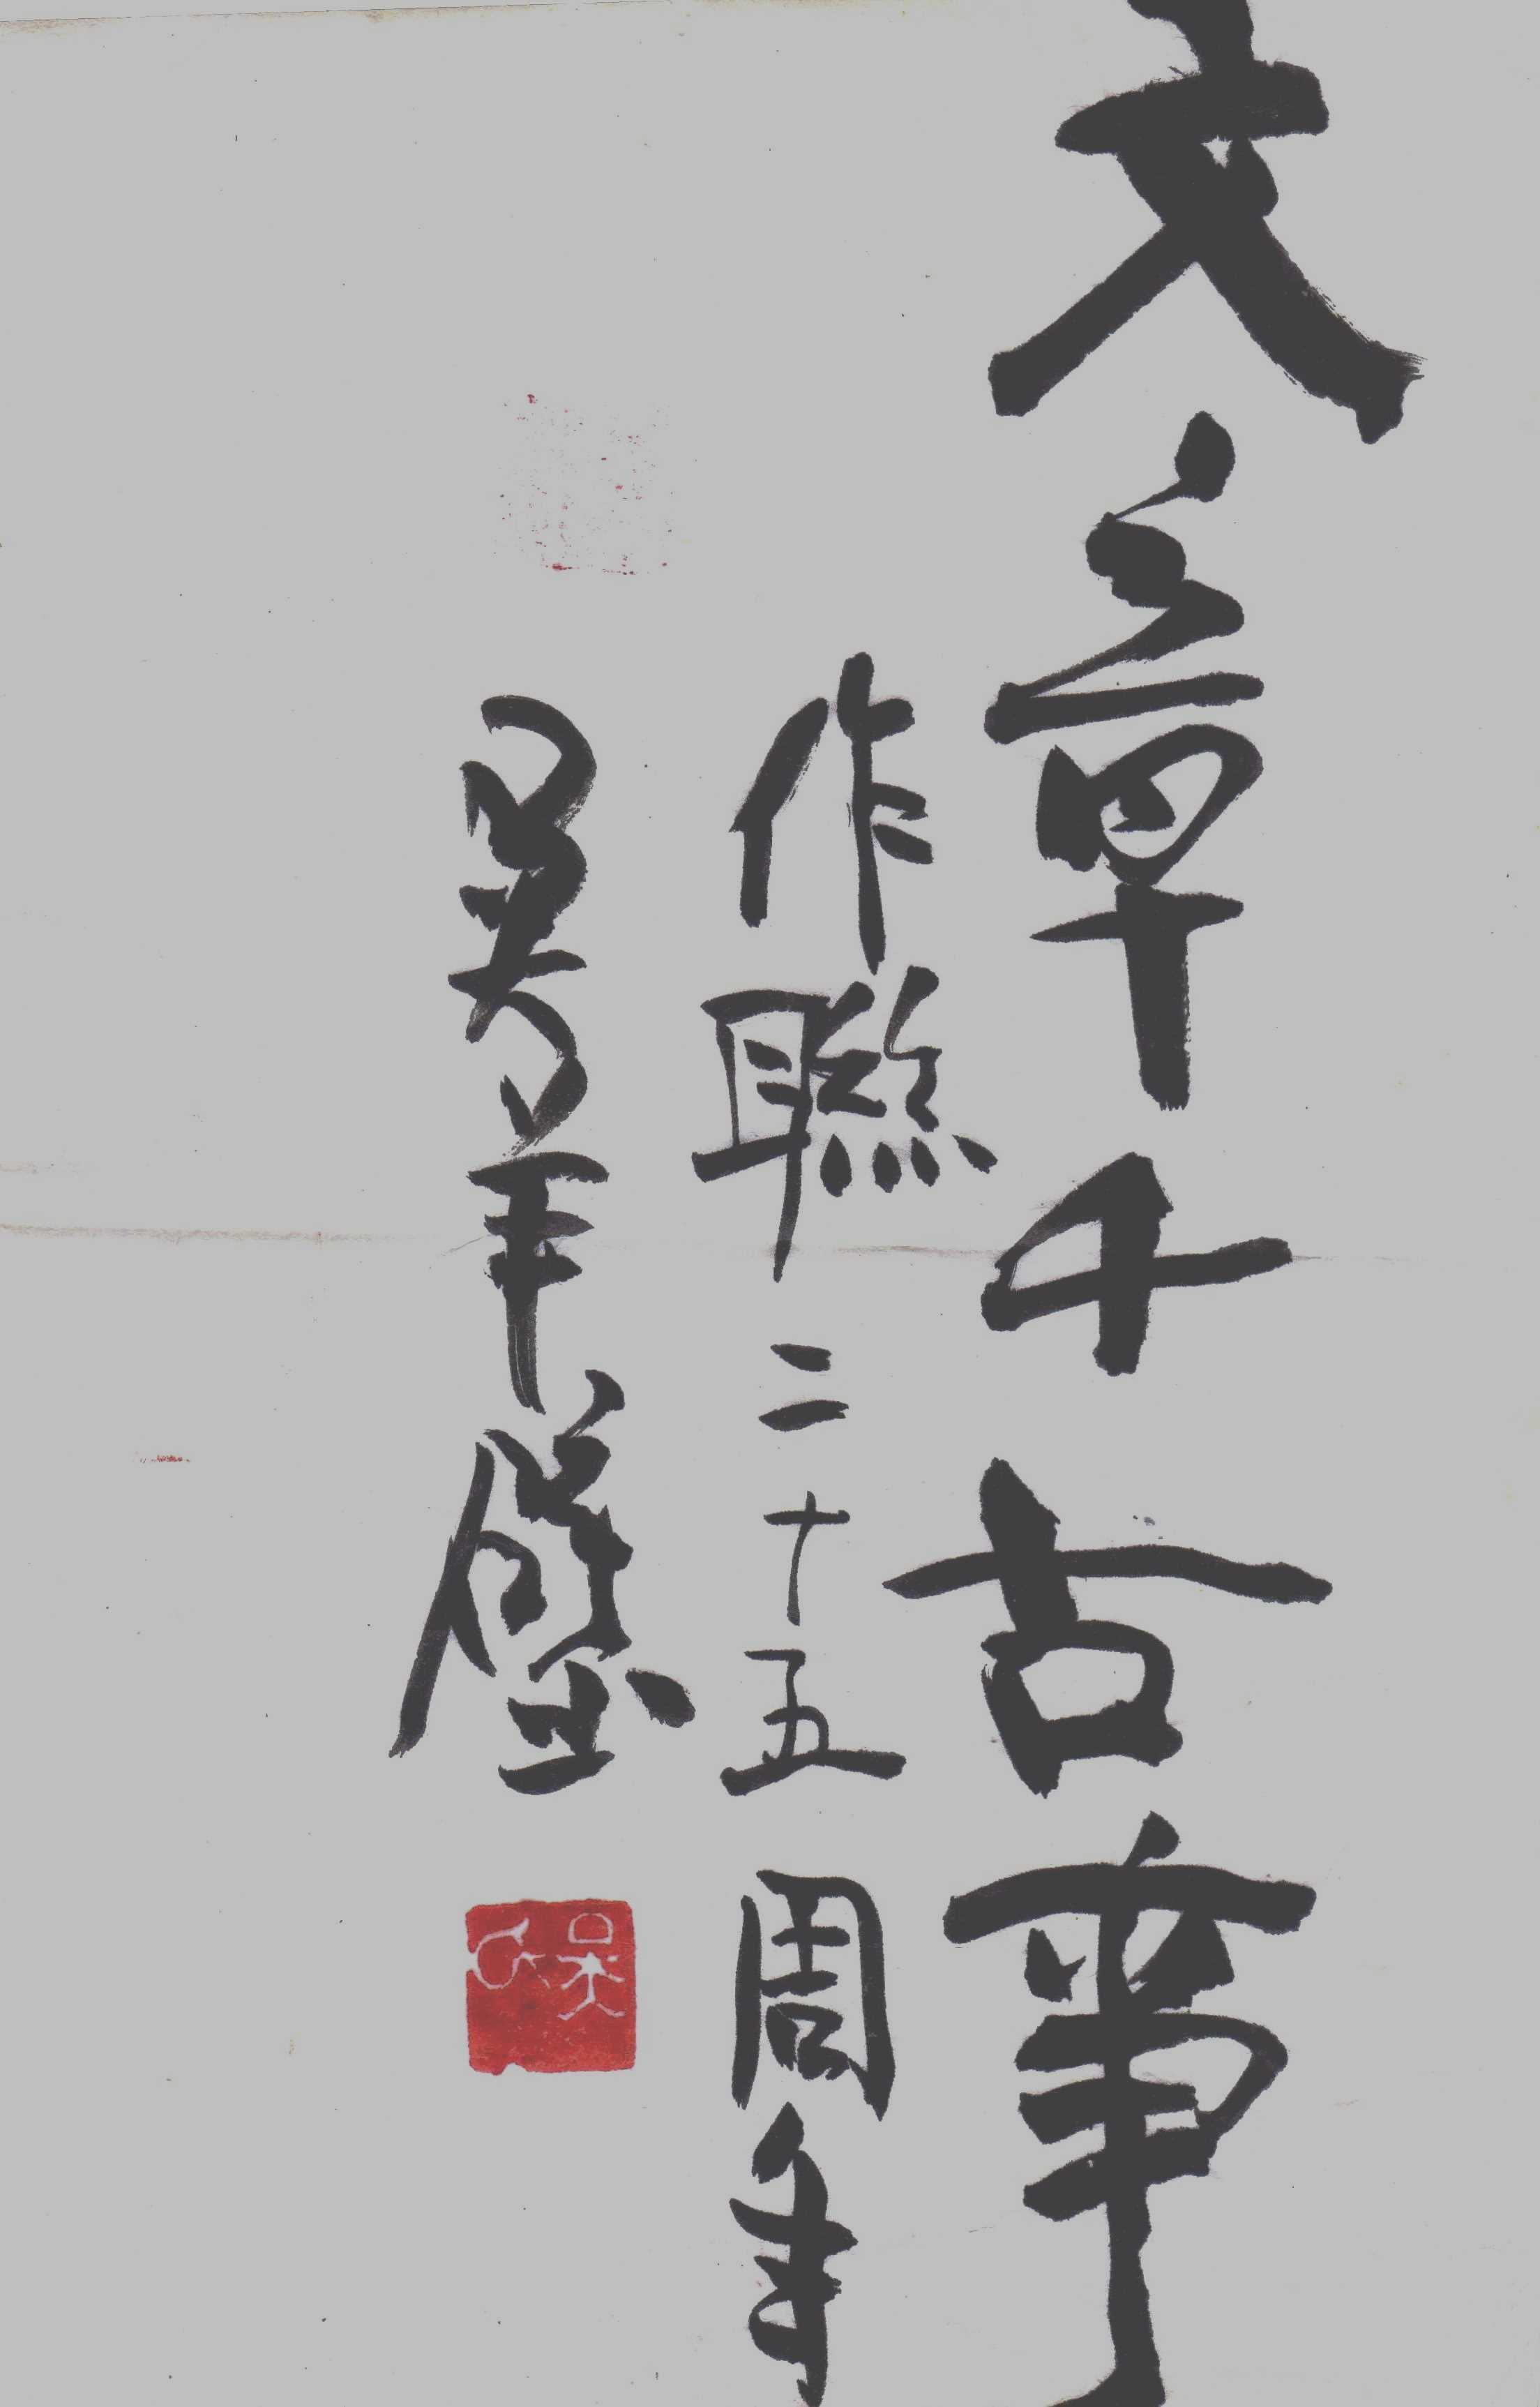 文章千古事
作聯二十五周年
吳羊璧